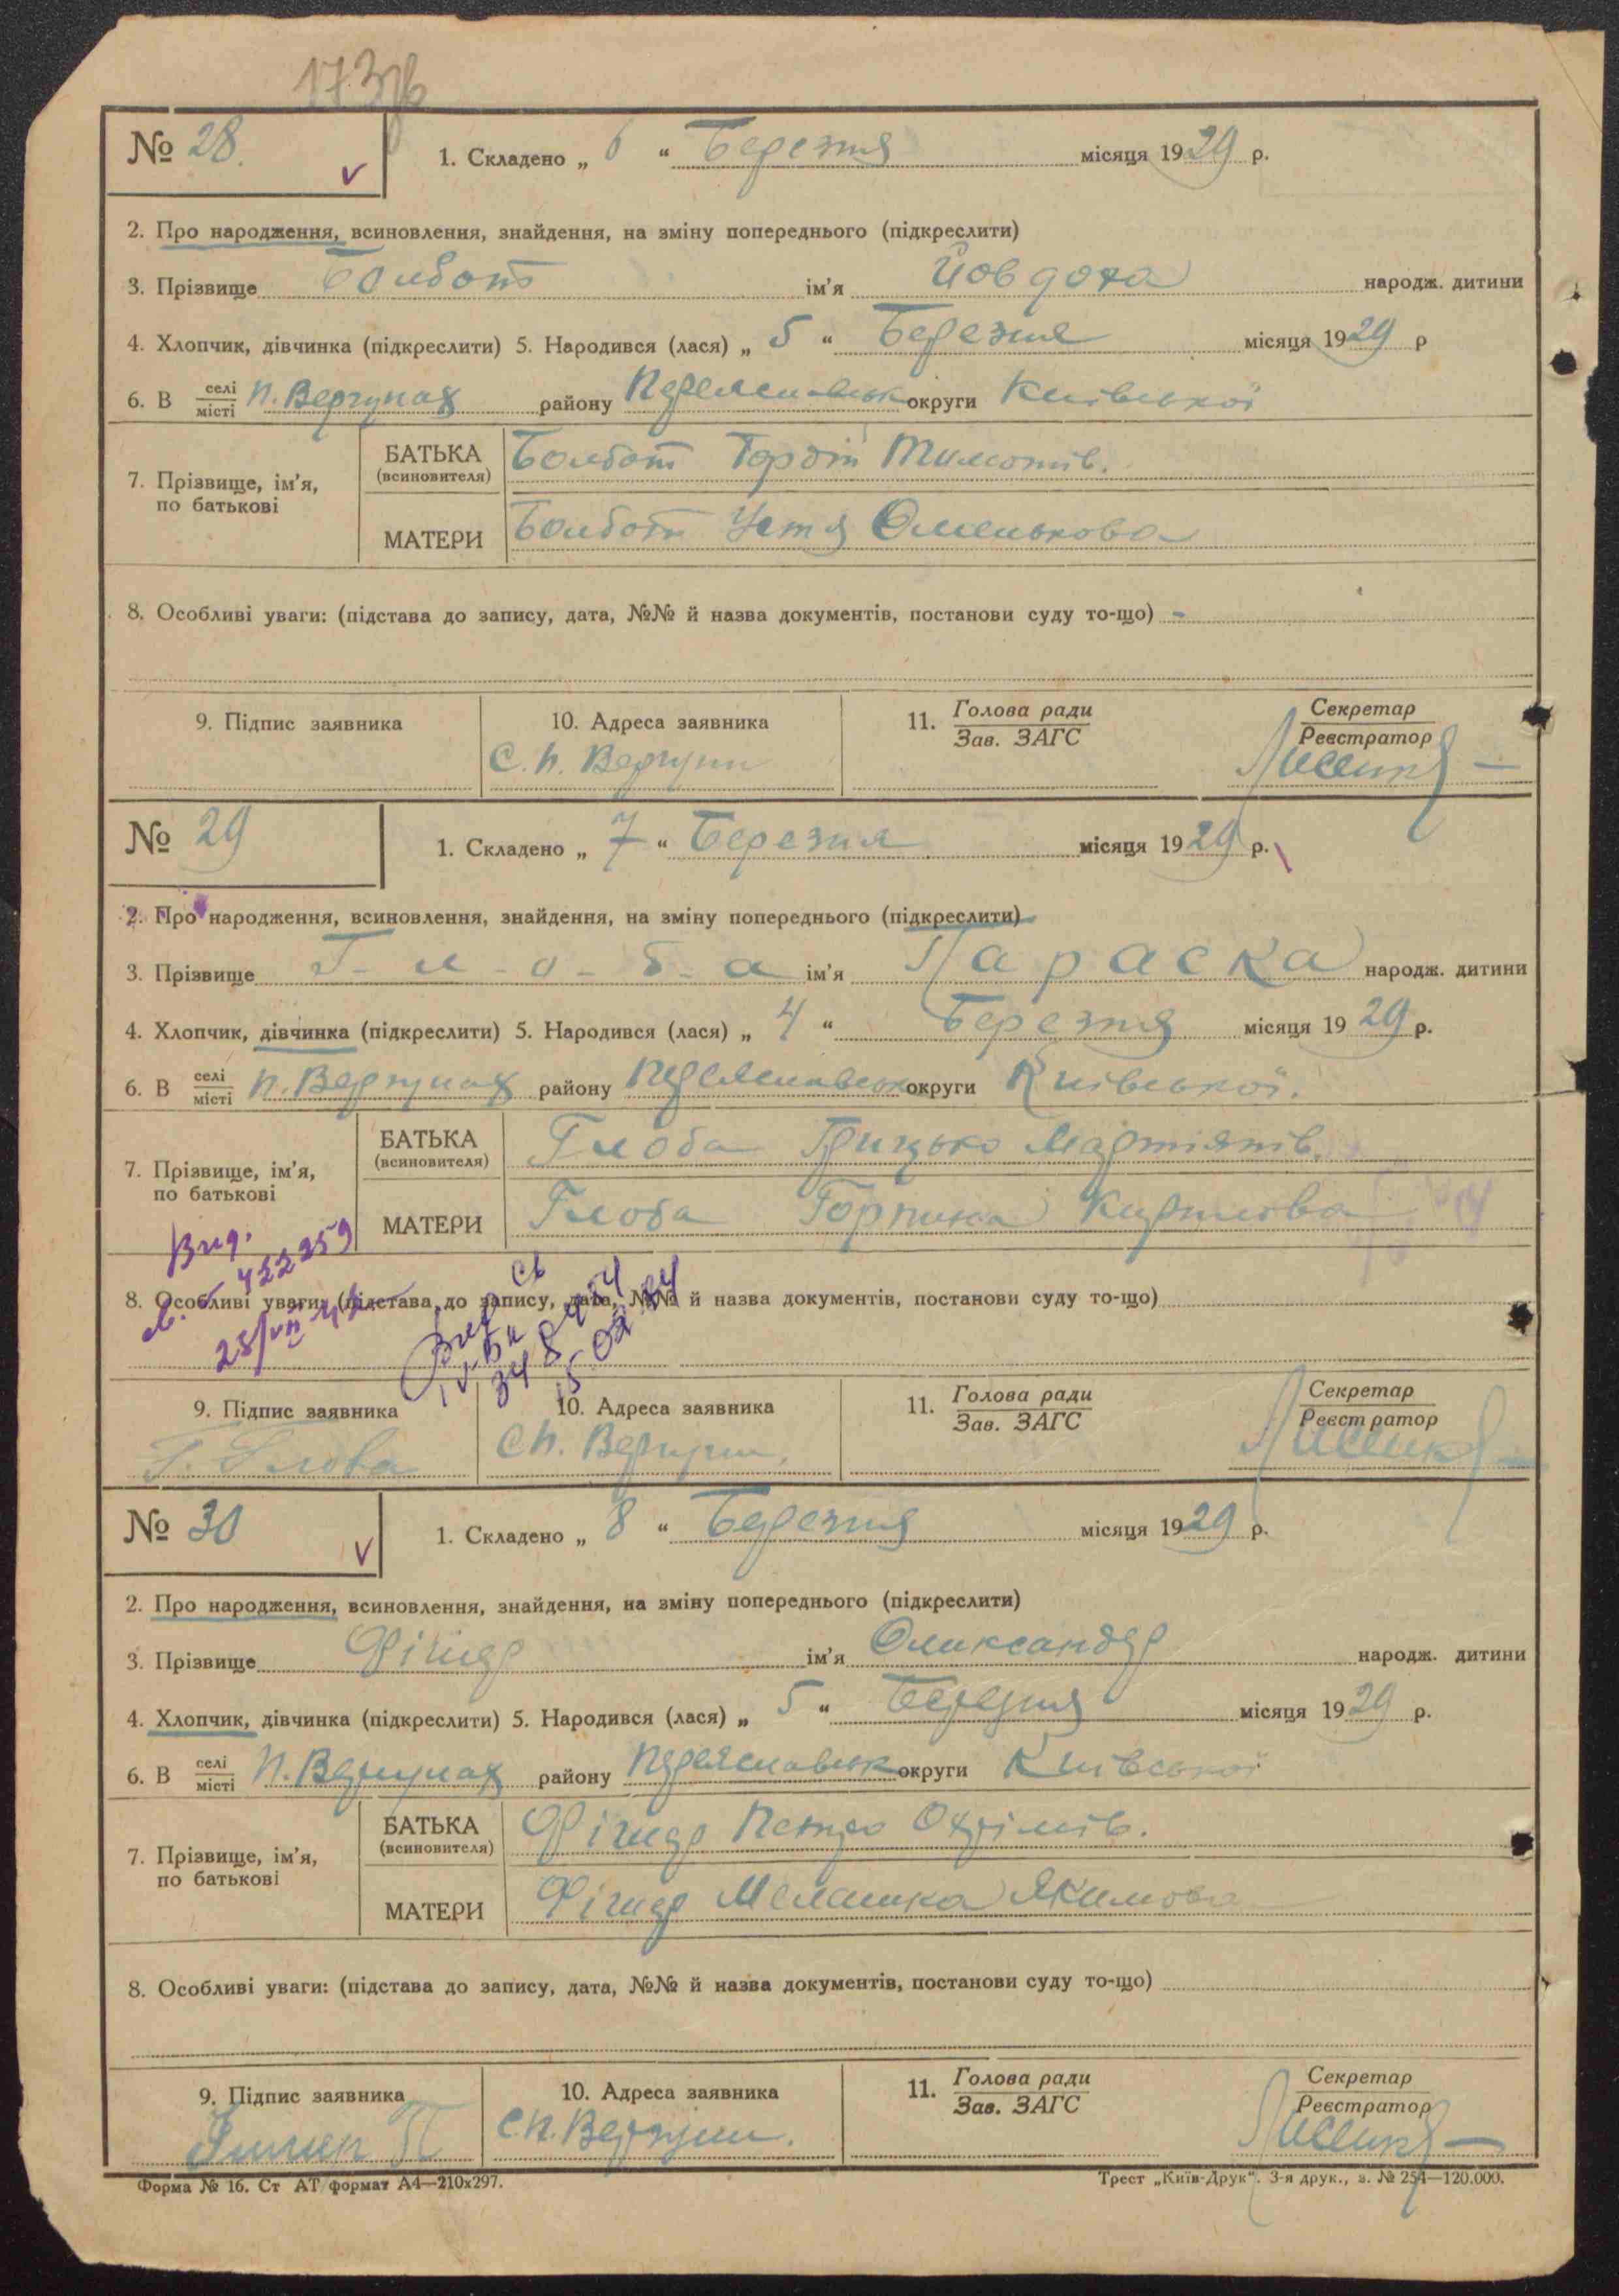 № 28. 1. Складено „ 6 “ Березня місяця 1929 р.
2. Про народження, всиновлення, знайдення, на зміну попереднього (підкреслити)
3. Прізвище Болбот ім'я Йовдоха народж. дитини
4. Хлопчик, дівчинка (підкреслити) 5. Народився (лася) „ 5 “ Березня місяця 1929 р
6. В селі місті П. Вергунах району Переяславськ округи Київської
7. Прізвище, ім'я, по батькові
БАТЬКА (всиновителя) Болбот Гордій Тимошів.
МАТЕРИ Болбот Устя Омелькова
8. Особливі уваги: (підстава до запису, дата, №№ й назва документів, постанови суду то-що) -
9. Підпис заявника 10. Адреса заявника 11. Голова ради Зав. ЗАГС Секретар Реєстратор
С. П. Вергуни
№ 29 1. Складено „ 7 “ Березня місяця 1929 р.
2. Про народження, всиновлення, знайдення, на зміну попереднього (підкреслити)
3. Прізвище Г-л-о-б-а ім'я Параска народж. дитини
4. Хлопчик, дівчинка (підкреслити) 5. Народився (лася) „ 4 “ Березня місяця 1929 р.
6. В селі місті П. Вергунах району Переяславськ округи Київської.
7. Прізвище, ім'я, по батькові
БАТЬКА (всиновителя) Глоба Грицько Мартіянів.
МАТЕРИ Глоба Горпина Кирилова
Вид.
422259
8. Особливі уваги: (підстава до запису, дата, №№ й назва документів, постанови суду то-що)
9. Підпис заявника 10. Адреса заявника 11. Голова ради Зав. ЗАГС Секретар Реєстратор
Г. Глоба С П. Вергуни.
№ 30 1. Складено „ 8 “ Березня місяця 1929 р.
2. Про народження, всиновлення, знайдення, на зміну попереднього (підкреслити)
3. Прізвище Фінер ім'я Олександер народж. дитини
4. Хлопчик, дівчинка (підкреслити) 5. Народився (лася) „ 5 “ Березня місяця 1929 р.
6. В селі місті П. Вергунах району Переяславськ округи Київської
7. Прізвище, ім'я, по батькові
БАТЬКА (всиновителя) Петро Охрімів.
МАТЕРИ Мелашка Якимова
8. Особливі уваги: (підстава до запису, дата, №№ й назва документів, постанови суду то-що)
9. Підпис заявника 10. Адреса заявника 11. Голова ради Зав. ЗАГС Секретар Реєстратор
С. П. Вергуни.
Форма № 16. Ст АТ формат А4—210х297. Трест „Київ-Друк“. 3-я друк., з. № 254—120.000.